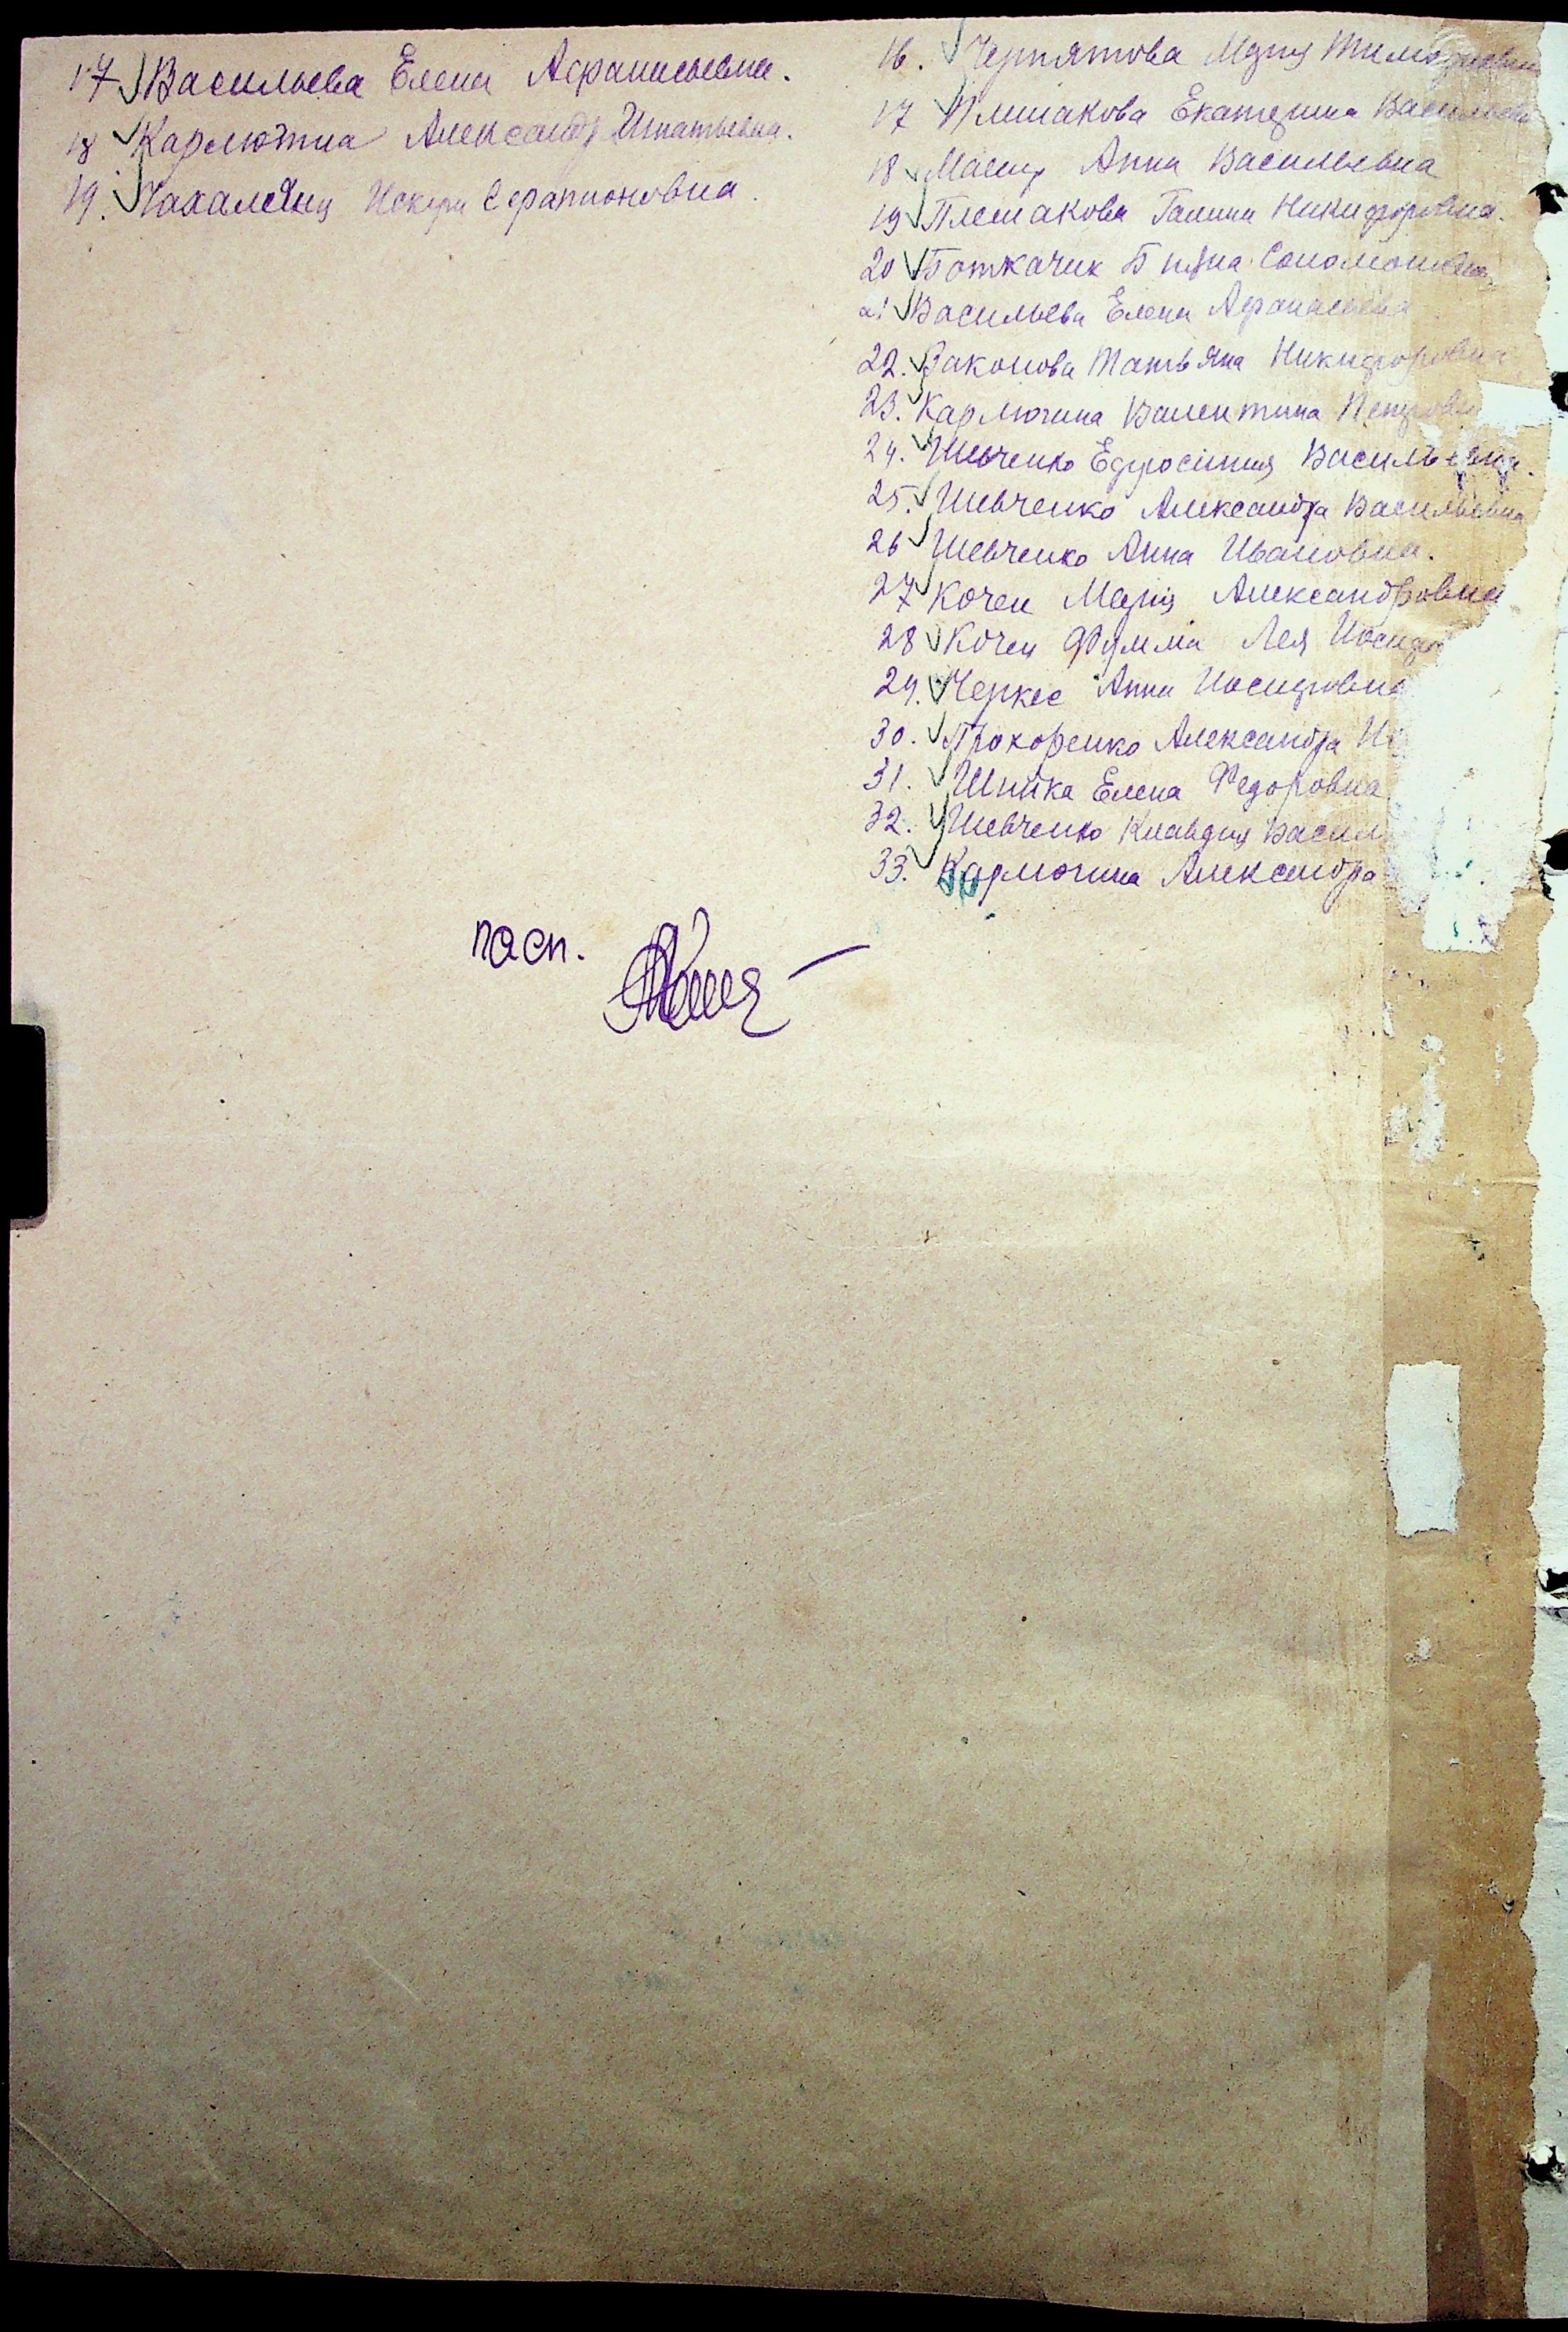 17 Васильева Елена Афанасьевна.
18 Карлютина Александр Игнатьевна.
19. Чахалянц Искуги Серапионовна.
16. Черпятова Мария Тимофеевна
17 Плешакова Екатерина Васильевна
18 Анна Васильевна
19 Плешакова Галина Никифоровна.
20 Боткачик Соломоновна
21 Васильева Елена Афанасьевна
22. Законова Татьяна Никифоровна
23. Карлючина Валентина Петровна
24. Шевченко Ефросиния Васильевна.
25. Шевченко Александра Васильевна
26 Шевченко Анна Ивановна.
27 Кочен Мария Александровна
28 Кочен Фумма Лея Иосиф
29. Черкес Анна Иосифовна
30. Прохоренко Александра И
31. Шпика Елена Федоровна
32. Шевченко Клавдия Васил
33. Карлючина Александра
пасп.